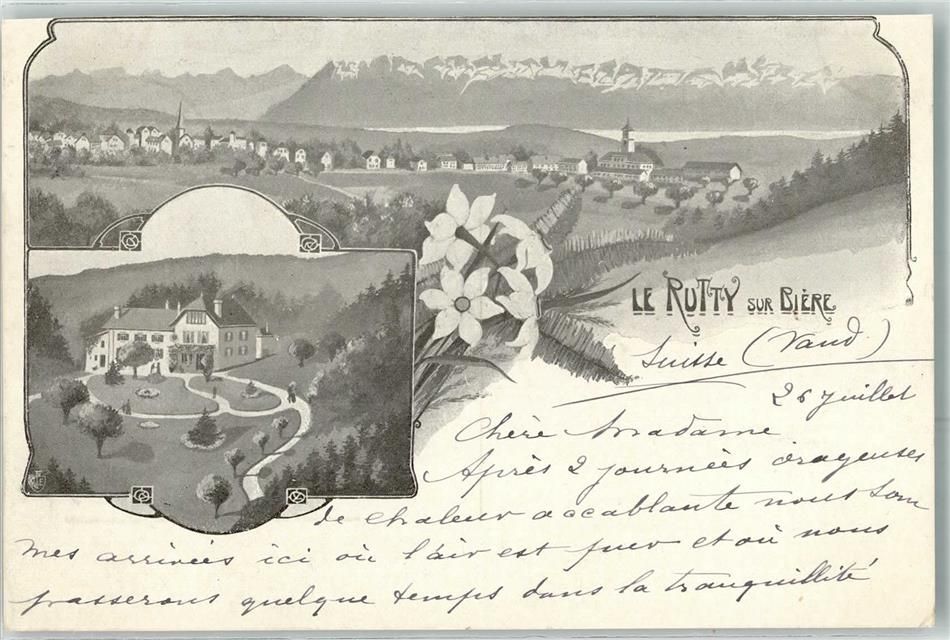 LE RUTTY SUR BIÈRE
Suisse (Vaud)
26 Juillet
Chère Madame
Après 2 journées orageuses
de chaleur accablante nous som
mes arrivées ici où l'air est pur et où nous
passerons quelque temps dans la tranquillité